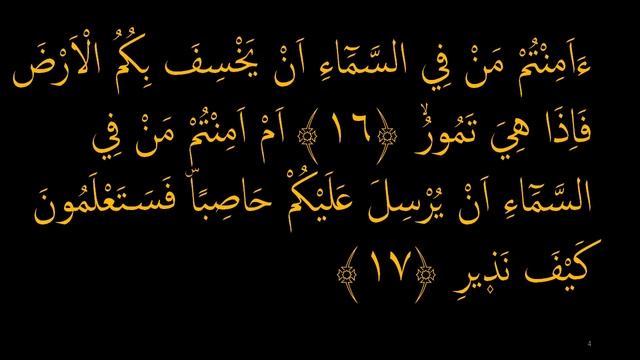 ءَاَمِنْتُمْ مَنْ فِي السَّمَٓاءِ اَنْ يَخْسِفَ بِكُمُ الْاَرْضَ
فَاِذَا هِيَ تَمُورُۙ ﴿١٦﴾ اَمْ اَمِنْتُمْ مَنْ فِي
السَّمَٓاءِ اَنْ يُرْسِلَ عَلَيْكُمْ حَاصِباًۜ فَسَتَعْلَمُونَ
كَيْفَ نَذ۪يرِ ﴿١٧﴾
4